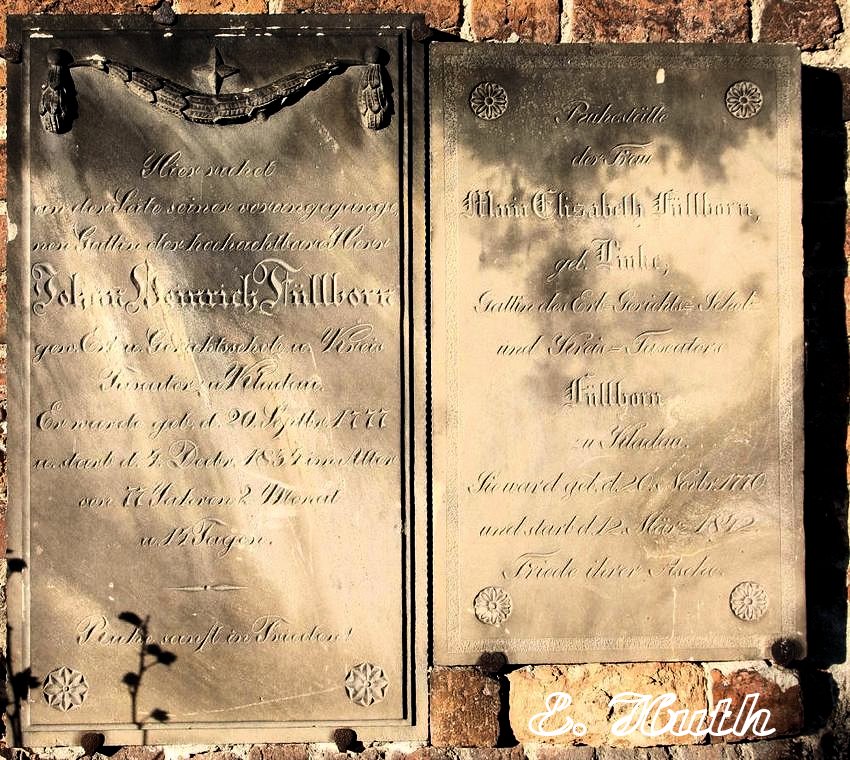 Hier ruhet
an der Seite seiner vorangegange,
nen Gattin der hochachtbare Herr
Johan Heinrich Füllborn
gew. Erb u. Gerichtsscholz u. Kreis
Taxator zu Kladau.
Er wurde geb. d. 20. Septbr. 1777
u. starb d. 4. Decbr. 1854 im Alter
von 77 Jahren 2 Monat
u. 14 Tagen.
Ruhe sanft in Frieden!
Ruhestätte
der Frau
Elisabeth Füllborn,
geb. Linke,
Gattin des Erb-Gerichts-Scholz
und Kreis-Taxators
Füllborn
zu Kladau.
Sie ward geb. d. 20. Novbr. 1770
und starb d. 12. März 1842.
Friede ihrer Asche.
E. Huth